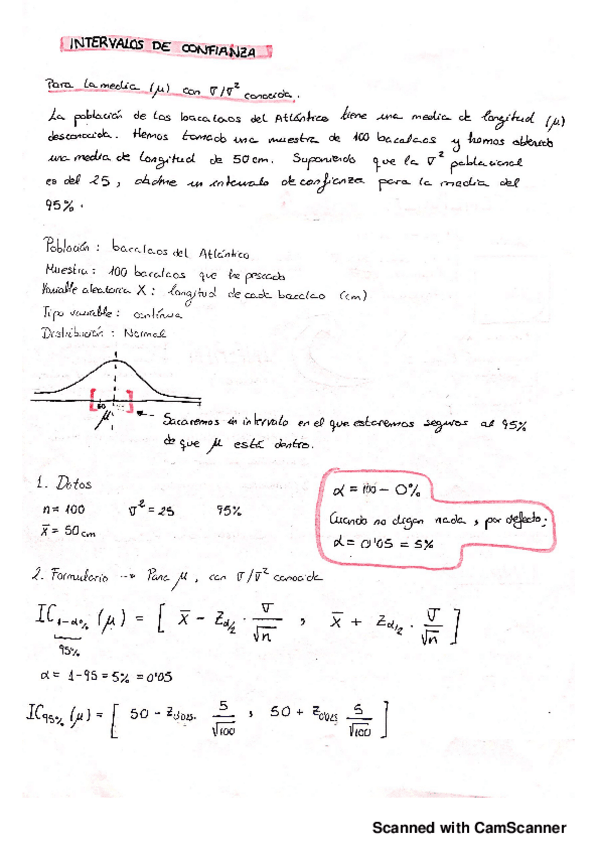 INTERVALOS DE CONFIANZA
Para la media (μ) con σ/σ² conocida.
La población de los bacalaos del Atlántico tiene una media de longitud (μ)
desconocida. Hemos tomado una muestra de 100 bacalaos y hemos obtenido
una media de longitud de 50 cm. Suponiendo que la σ² poblacional
es del 25, obtdme un intervalo de confianza para la media del
95%.
Población: bacalaos del Atlántico
Muestra: 100 bacalaos que he pescado
Variable aleatoria X: longitud de cada bacalao (cm)
Tipo variable: contínua
Distribución: Normal
[ 50 ]
μ
Sacaremos un intervalo en el que estaremos seguros al 95%
de que μ está dentro.
1. Datos
n = 100 σ² = 25 95%
x̄ = 50 cm
α = 100 - 0%
Cuando no digan nada, por defecto:
α = 0'05 = 5%
2. Formulario → Para μ, con σ/σ² conocida
IC₁₋α% (μ) = [ x̄ - Z_α/2 · σ/√n , x̄ + Z_α/2 · σ/√n ]
95%
α = 1-95 = 5% = 0'05
IC95% (μ) = [ 50 - Z0'025 · 5/√100 , 50 + Z0'025 5/√100 ]
Scanned with CamScanner